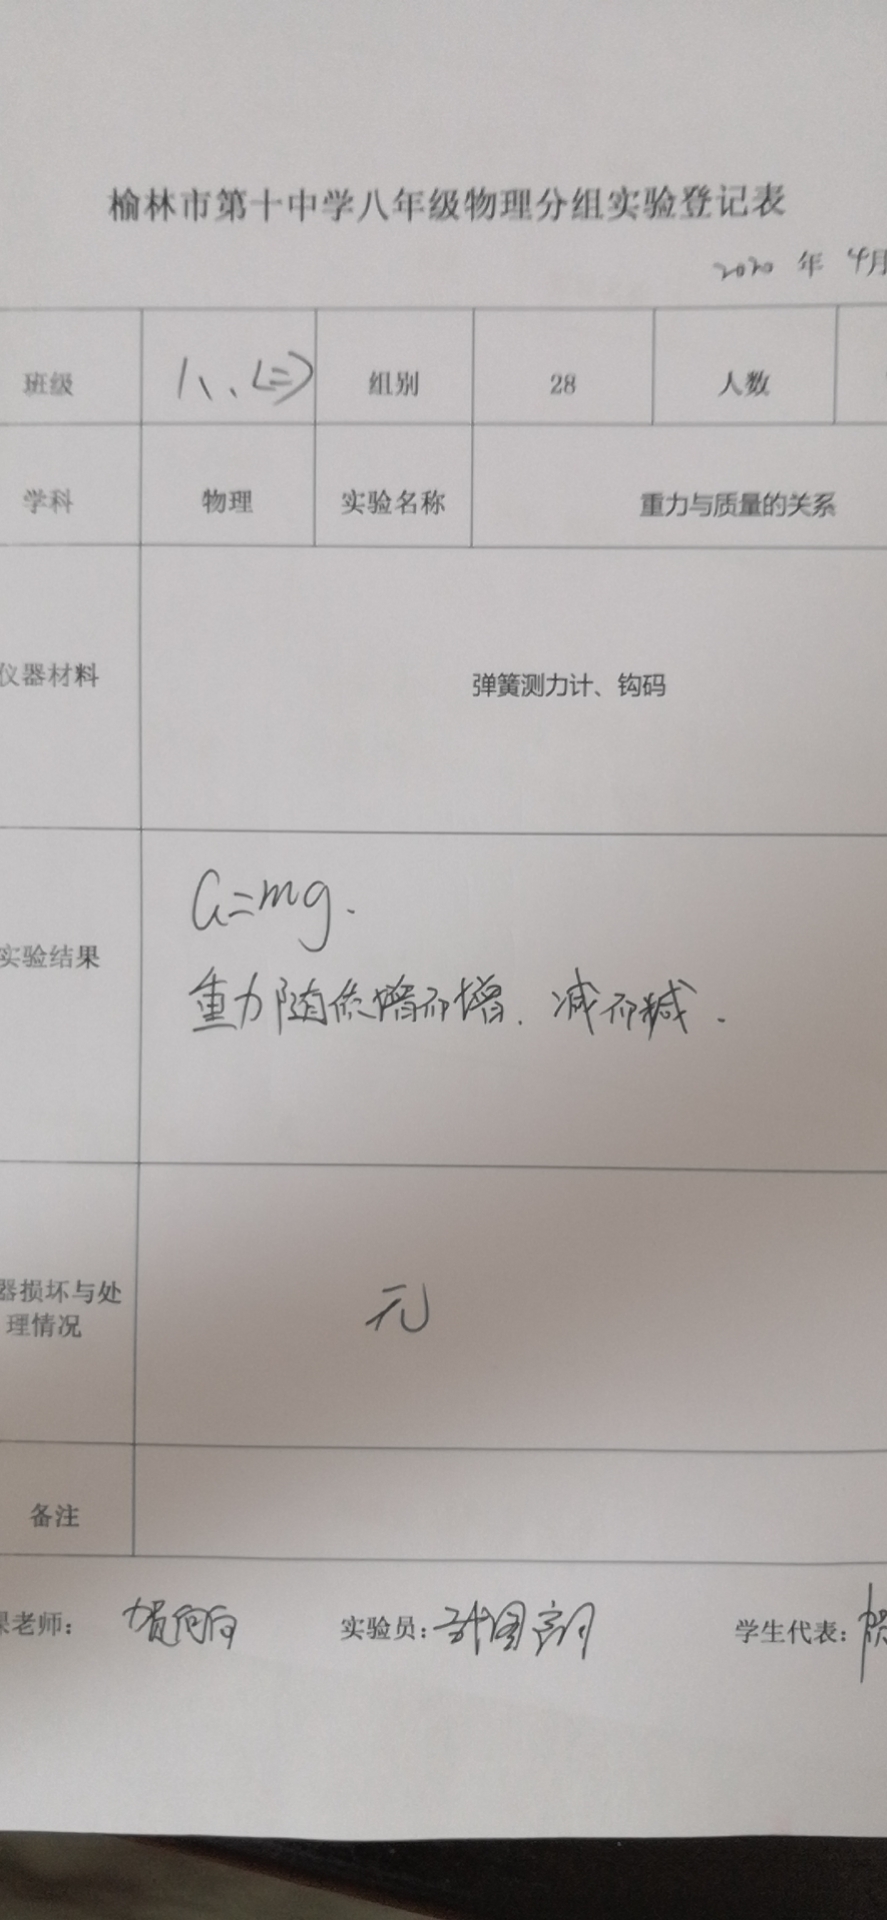 榆林市第十中学八年级物理分组实验登记表
2020 年 4月
班级 八、(二) 组别 28 人数
学科 物理 实验名称 重力与质量的关系
仪器材料 弹簧测力计、钩码
G=mg.
实验结果
重力随质增而增. 减而减.
器损坏与处
理情况
无
备注
课老师: 贺 实验员: 学生代表: